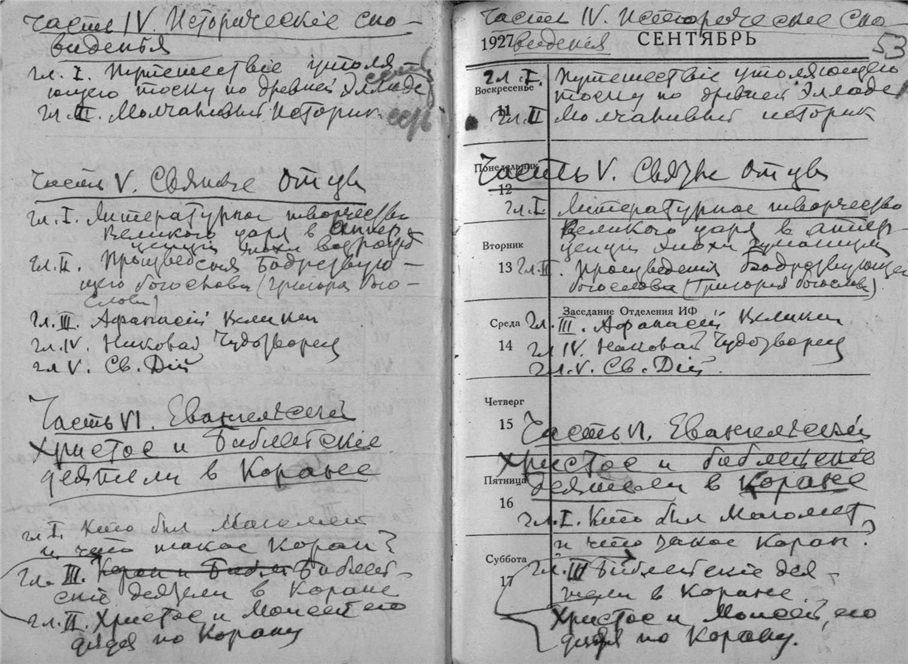 Часть IV. Историческіе сно-
виденья
гл. I. Путешествіе утоля
ющего тоску по древней Элладе
гл. II. Молчаливый историк
Часть V. Связные отцы
гл. I. Литературное творчество
Великого царя в
гл. II. Произведения Бодрствую-
щего богослова (Григора бого-
слова)
гл. III. Афанасій Великий
гл. IV. Николай Чудотворец
гл. V. Св. Дій
Часть VI. Евангельский
Христос и Библейскіе
деятели в Коране
гл. I. Кто был Магомет
и что такое Коран?
гл. III. Коран и Библия Библейс-
кіе деятели в Коране
гл. II. Христос и Моисей его
дядя по Корану
Часть IV. Историческіе сно-
1927 видения СЕНТЯБРЬ 53
гл. I. Путешествіе утоляющего
Воскресенье тоску по древней Элладе
11 гл. II Молчаливый историк
Понедельник
Часть V. Связные отцы
12
гл. I. Литературное творчество
Великого царя в
Вторник
13 гл. II. Произведения Бодрствующего
богослова (Григорія богослова)
Заседание Отделения ИФ
Среда гл. III. Афанасій Великий
14 гл IV. Николай Чудотворец
гл. V. Св. Дій
Четверг
15 Часть VI. Евангельский
Христос и библейскіе
Пятница деятели в Коране
16
гл. I. Кто был Магомет,
и что такое Коран?
Суббота гл. III Библейскіе дея-
17 тели в Коране
Христос и Моисей, его
дядя по Корану.